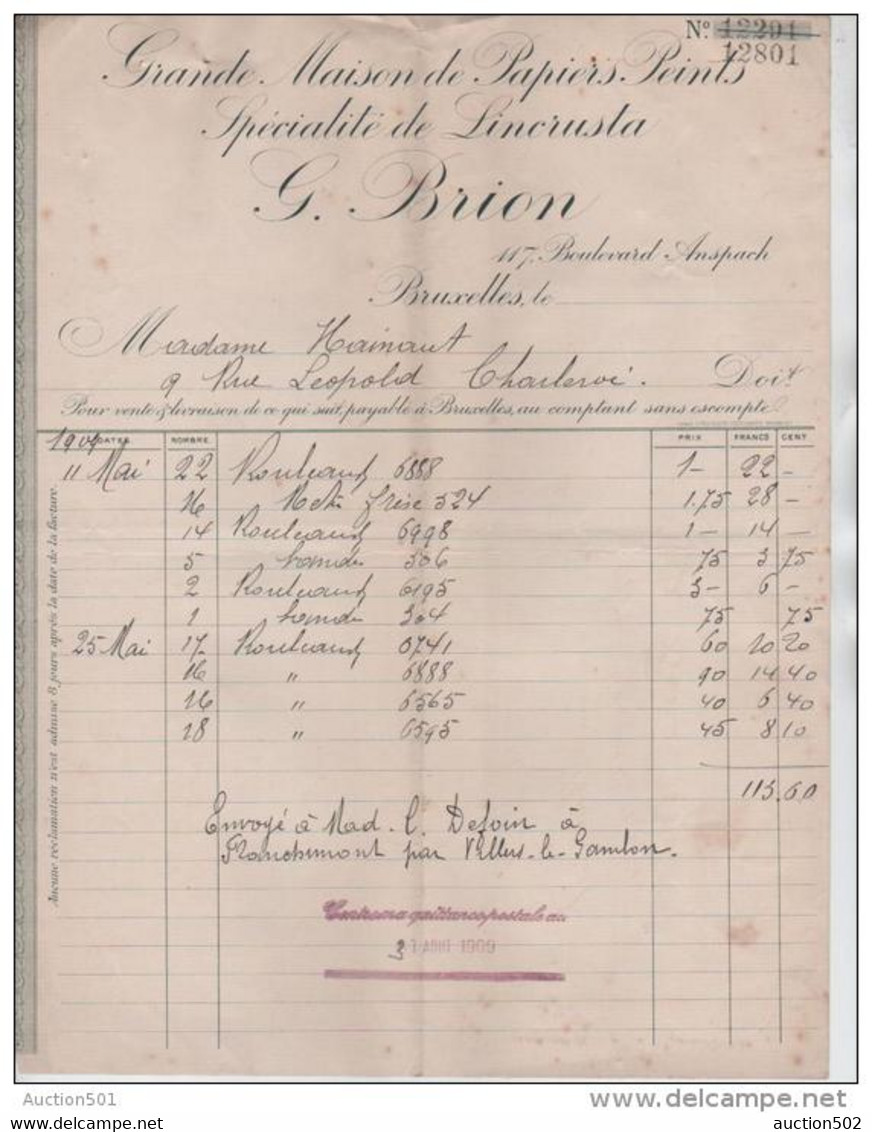 Nº 12291
12801
Grande Maison de Papiers Peints
Spécialité de Lincrusta
G. Brion
117, Boulevard Anspach
Bruxelles, le
Madame Hainaut
9 Rue Leopold Charleroi. Doit
Pour vente & livraison de ce qui suit, payable à Bruxelles, au comptant sans escompte
1909 DATES NOMBRE PRIX FRANCS CENT
11 Mai 22 Rouleaux 6888 1- 22 -
16 frise 524 1.75 28 -
14 Rouleaux 6998 1- 14 -
5 bandes 306 75 3 75
2 Rouleaux 6195 3- 6 -
1 bande 304 75 75
25 Mai 17 Rouleaux 0741 60 10 20
16 " 6888 90 14 40
16 " 6565 40 6 40
18 " 6595 45 8 10
113.60
Envoyé à Mad. C. Defoin à
Franchimont par Villers-le-Gambon.
Aucune réclamation n'est admise 8 jours après la date de la facture
Contre ma quittance postale au
31 AOUT 1909
Auction501
delcampe.net
auction502